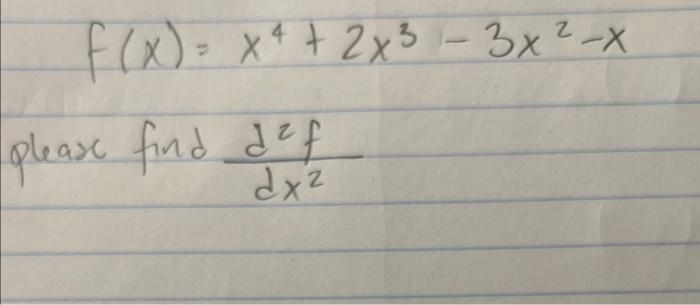 f(x) = x⁴ + 2x³ - 3x² - x
please find d²f
dx²